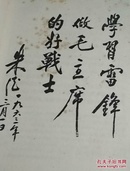 学習雷鋒
做毛主席
的好战士
朱德一九六三年
三月一日